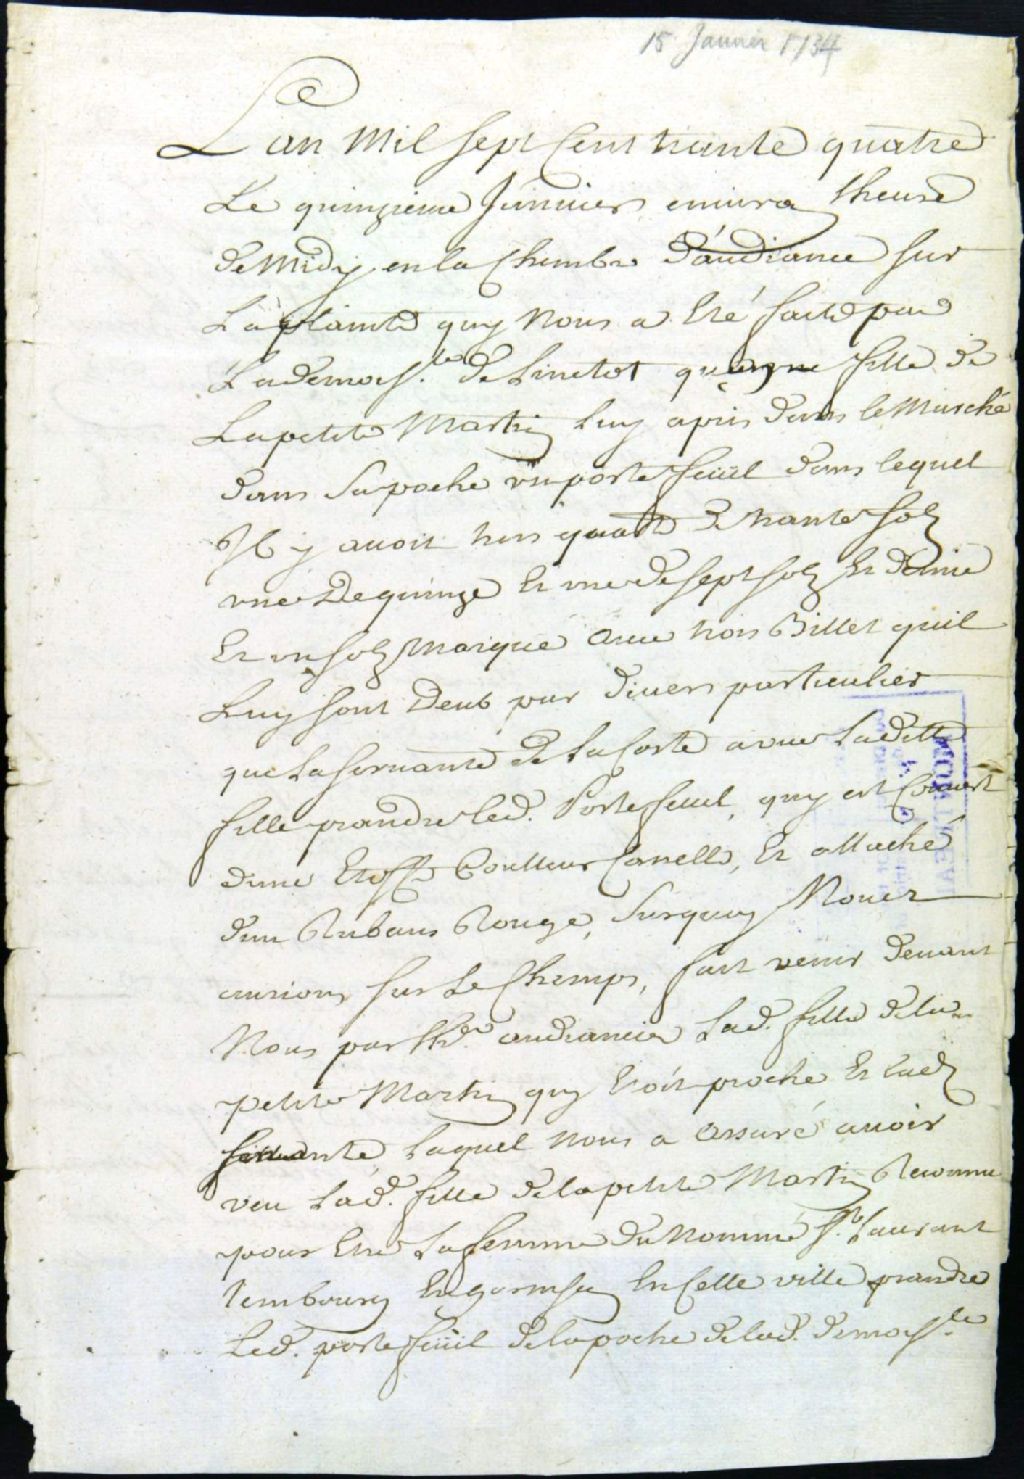 15 Janvier 1734
Lan Mil Sept Cent trante quatre
Le quinzieme Januier enuiron lheure
de Midy en la Chambre daudiance sur
La plainte quy Nous a Eté faite par
La demoislle de Linctot quune fille de
La petite Martin Luy a pris dans le Marché
dans Sa poche un porte feuil dans lequel
Il y auoit trois quart de trante sols
une de quinze Et une de sept sols Et demie
Et un sols Marqué Auec trois Billet quil
Luy sont Deub par diuers particulier
que La seruante de La Coste a vue Laditte
fille prandre led. Porte feuil, quy est Couuert
dune Etoffe Coulleur Canelle, Et attaché
dun Rubans Rouge, Surquoy Nous
aurions sur Le Champs, fait venir deuant
Nous par audiancier Lad. fille de la
petite Martin quy Etoit proche Et lad
seruante, Laquel Nous a Assuré auoir
veu Lad. fille de la petite Martin Reconnue
pour Etre La femme du Nommé St. Laurant
Tembourg En garnison En Cette ville prandre
Led. porte feüil de la poche de lad. demoislle
MONTREAL